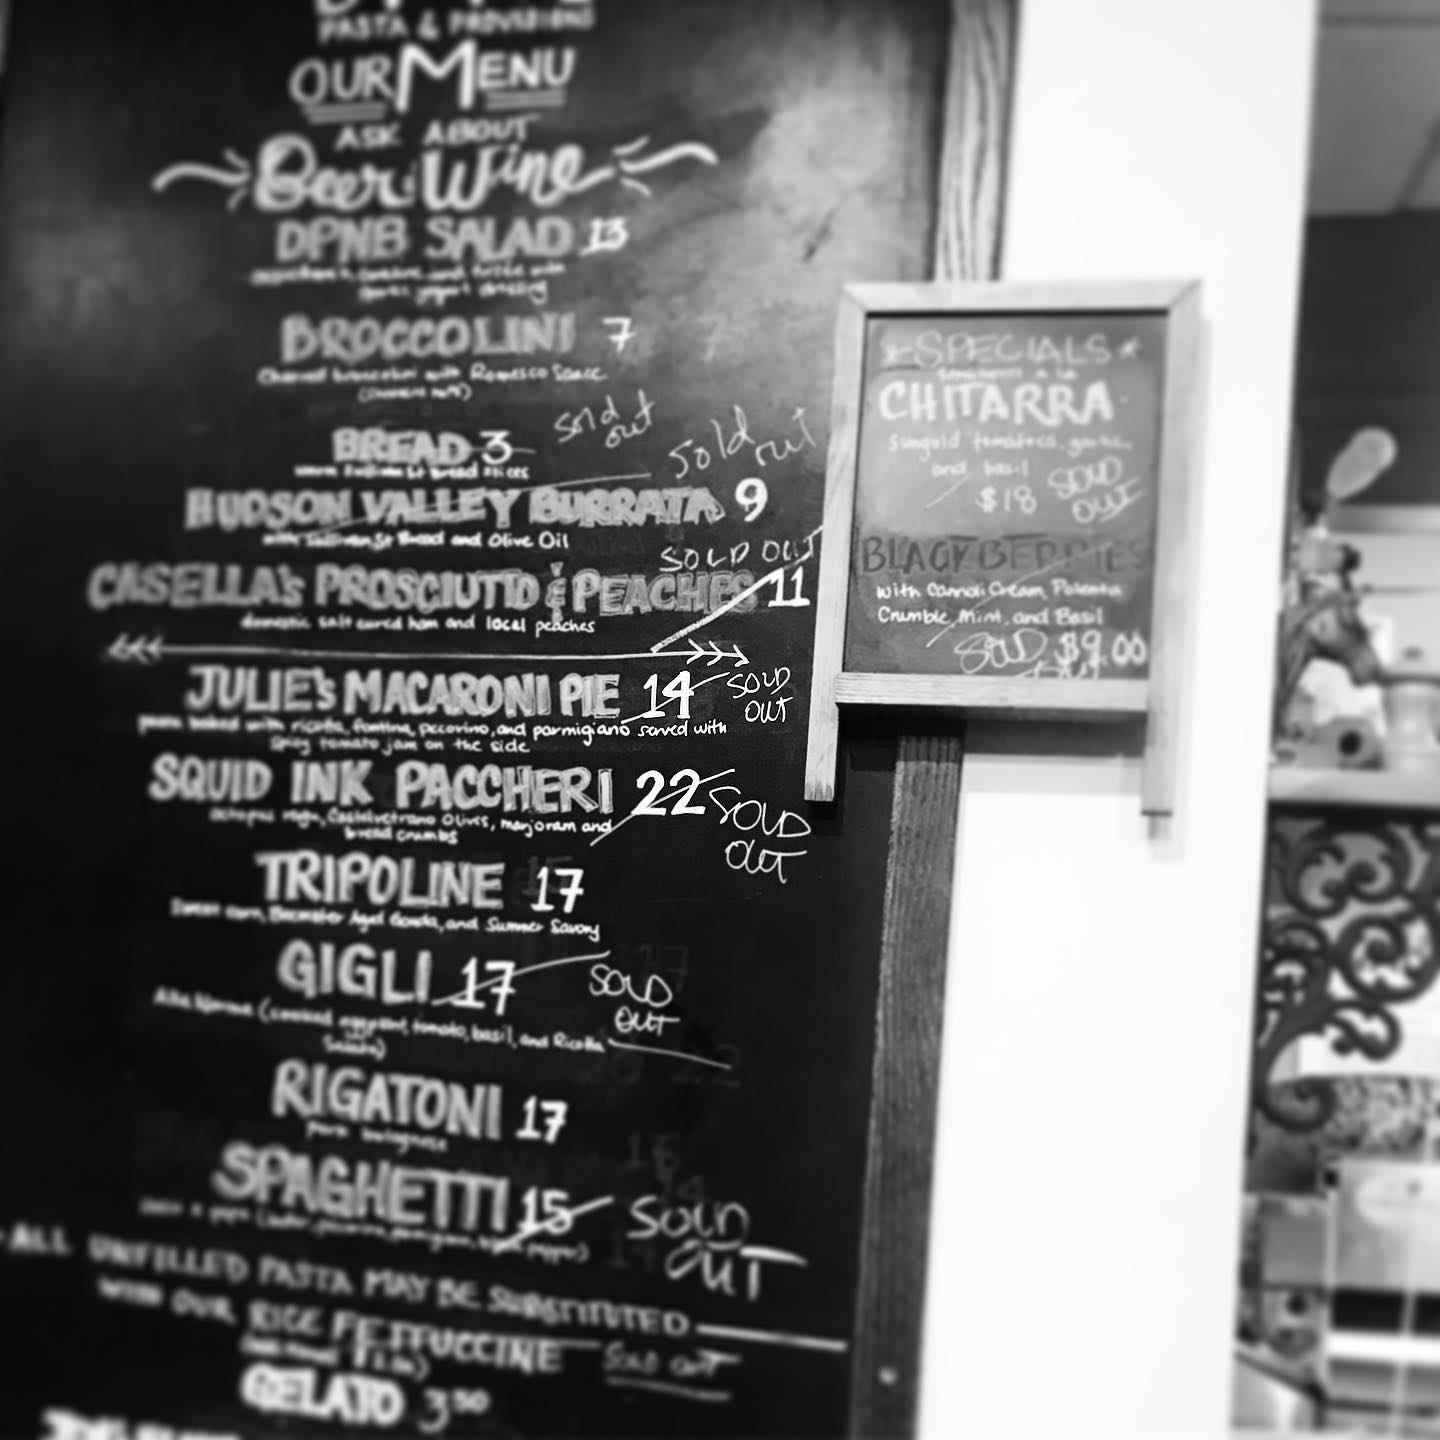 PASTA & PROVISIONS
OUR MENU
ASK ABOUT
Beer Wine
DPNB SALAD 13
yogurt dressing
BROCCOLINI 7
Charred broccolini with Romesco Sauce
BREAD 3 Sold out
warm Sullivan St bread slices
Sold out
HUDSON VALLEY BURRATA 9
with Sullivan St Bread and Olive Oil
SOLD OUT
CASELLA's PROSCIUTTO & PEACHES 11
domestic salt cured ham and local peaches
JULIE's MACARONI PIE 14 SOLD OUT
pasta baked with ricotta, fontina, pecorino, and parmigiano served with
Spicy tomato jam on the side
SQUID INK PACCHERI 22 SOLD OUT
octopus ragu, Castelvetrano Olives, marjoram and
bread crumbs
TRIPOLINE 17
Sweet corn, Beemster Aged Gouda, and Summer Savory
GIGLI 17 SOLD OUT
Alla Norma (cooked eggplant, tomato, basil, and Ricotta
Salata)
RIGATONI 17
pork bolognese
SPAGHETTI 15 SOLD OUT
ALL UNFILLED PASTA MAY BE SUBSTITUTED
WITH OUR RICE FETTUCCINE SOLD OUT
GELATO 3.50
SPECIALS
CHITARRA
Sungold tomatoes, garlic,
and basil
$18 SOLD OUT
BLACKBERRIES
with Cannoli Cream, Polenta
Crumble, Mint, and Basil
SOLD OUT $9.00